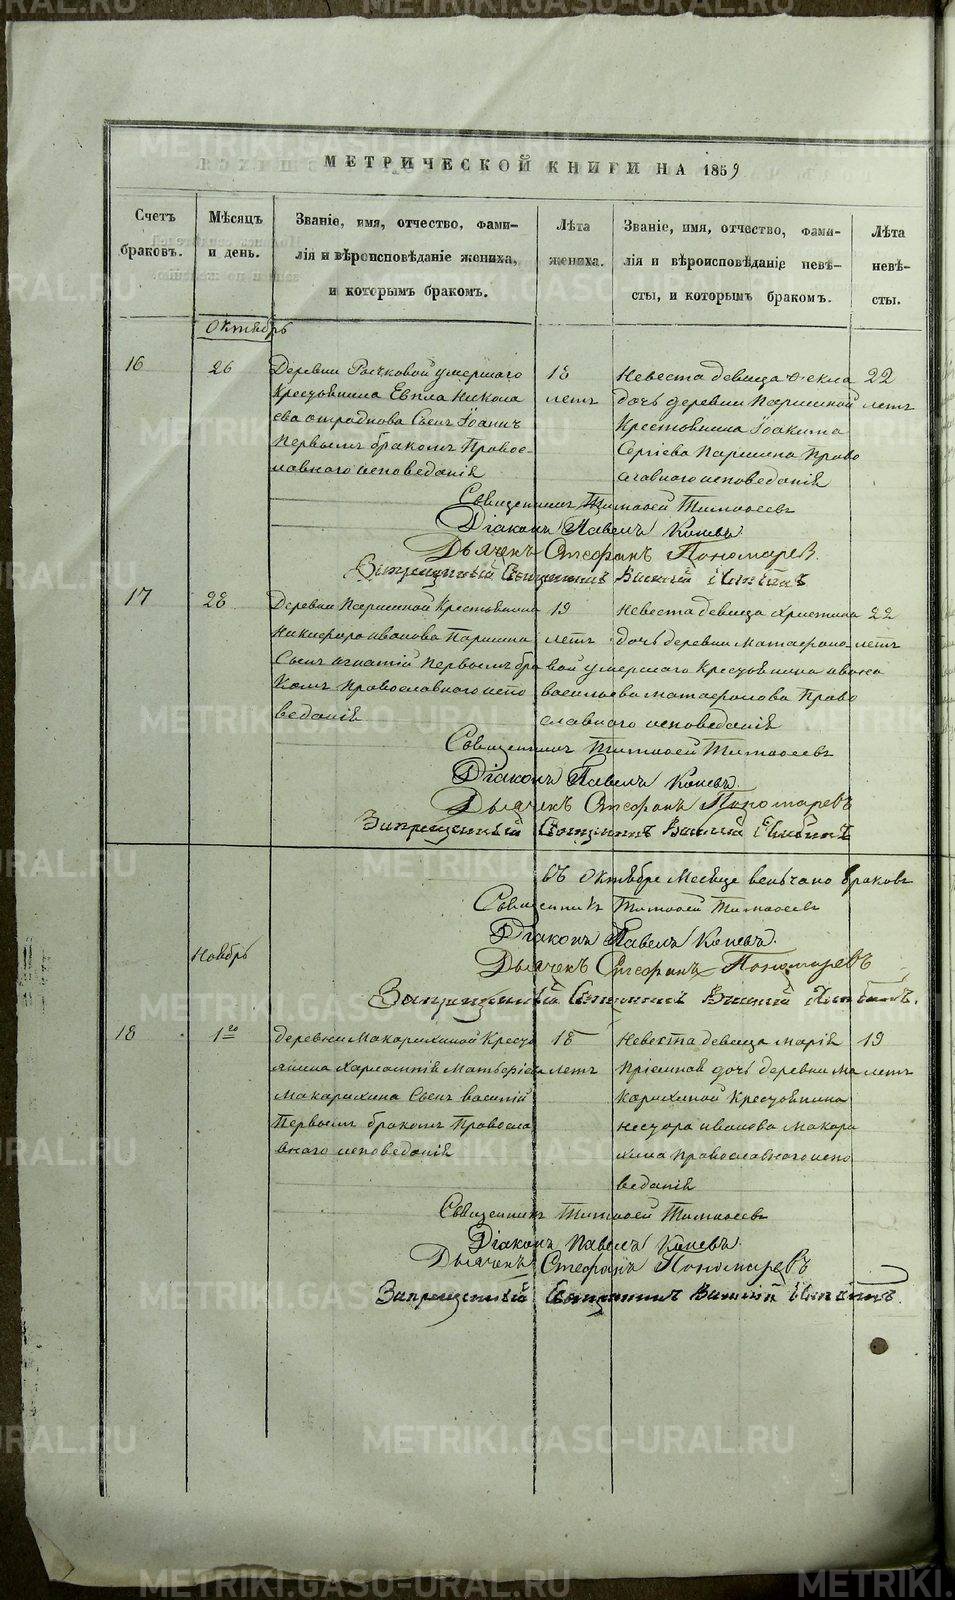 МЕТРИЧЕСКОЙ КНИГИ НА 1859
Счетъ браковъ.
Мѣсяцъ и день.
Званіе, имя, отчество, фами-
лія и вѣроисповѣданіе жениха,
и которымъ бракомъ.
Лѣта жениха.
Званіе, имя, отчество, фами-
лія и вѣроисповѣданіе невѣ-
сты, и которымъ бракомъ.
Лѣта невѣ-
сты.
Октябрь
16
26
Деревни умершаго
Крестьянина Евпла Никола
ева Сынъ Іоаннъ
Первымъ бракомъ Правос-
лавного исповеданія
18
летъ
Невеста девица Фекла
дочь деревни Паршиной
Крестьянина Іоакима
Сергіева Паршина Право
славного исповеданія
22
летъ
Священникъ Тимофей Тимофеевъ
Діаконъ Павелъ Коневъ
Дьячекъ Стефанъ Пономаревъ
Запрещенный Священникъ Василій
17
28
Деревни Паршиной Крестьянина
Никифора иванова Паршина
Сынъ игнатій Первымъ бра
комъ Православного испо
веданія
19
летъ
Невеста девица Христина
дочь деревни Матафоно
вой умершаго Крестьянина ивана
васильева матафонова Право
славного исповеданія
22
летъ
Священникъ Тимофей Тимофеевъ
Діаконъ Павелъ Коневъ
Дьячекъ Стефанъ Пономаревъ
Запрещенный Священникъ Василій
въ Октябре Месяце венчано браковъ
Священникъ Тимофей Тимофеевъ
Діаконъ Павелъ Коневъ
Дьячекъ Стефанъ Пономаревъ
Запрещенный Священникъ Василій
Ноябрь
18
1го
деревни Макарихиной Кресть
янина Харлампія Матьфіева
Макарихина Сынъ василій
Первымъ бракомъ Правосла
вного исповеданія
18
летъ
Невеста девица марія
Пріемная дочь деревни Ма
карихиной Крестьянина
нестора иванова Макари
хина Православного испо
веданія
19
летъ
Священникъ Тимофей Тимофеевъ
Діаконъ Павелъ Коневъ
Дьячекъ Стефанъ Пономаревъ
Запрещенный Священникъ Василій
METRIKI.GASO-URAL.RU